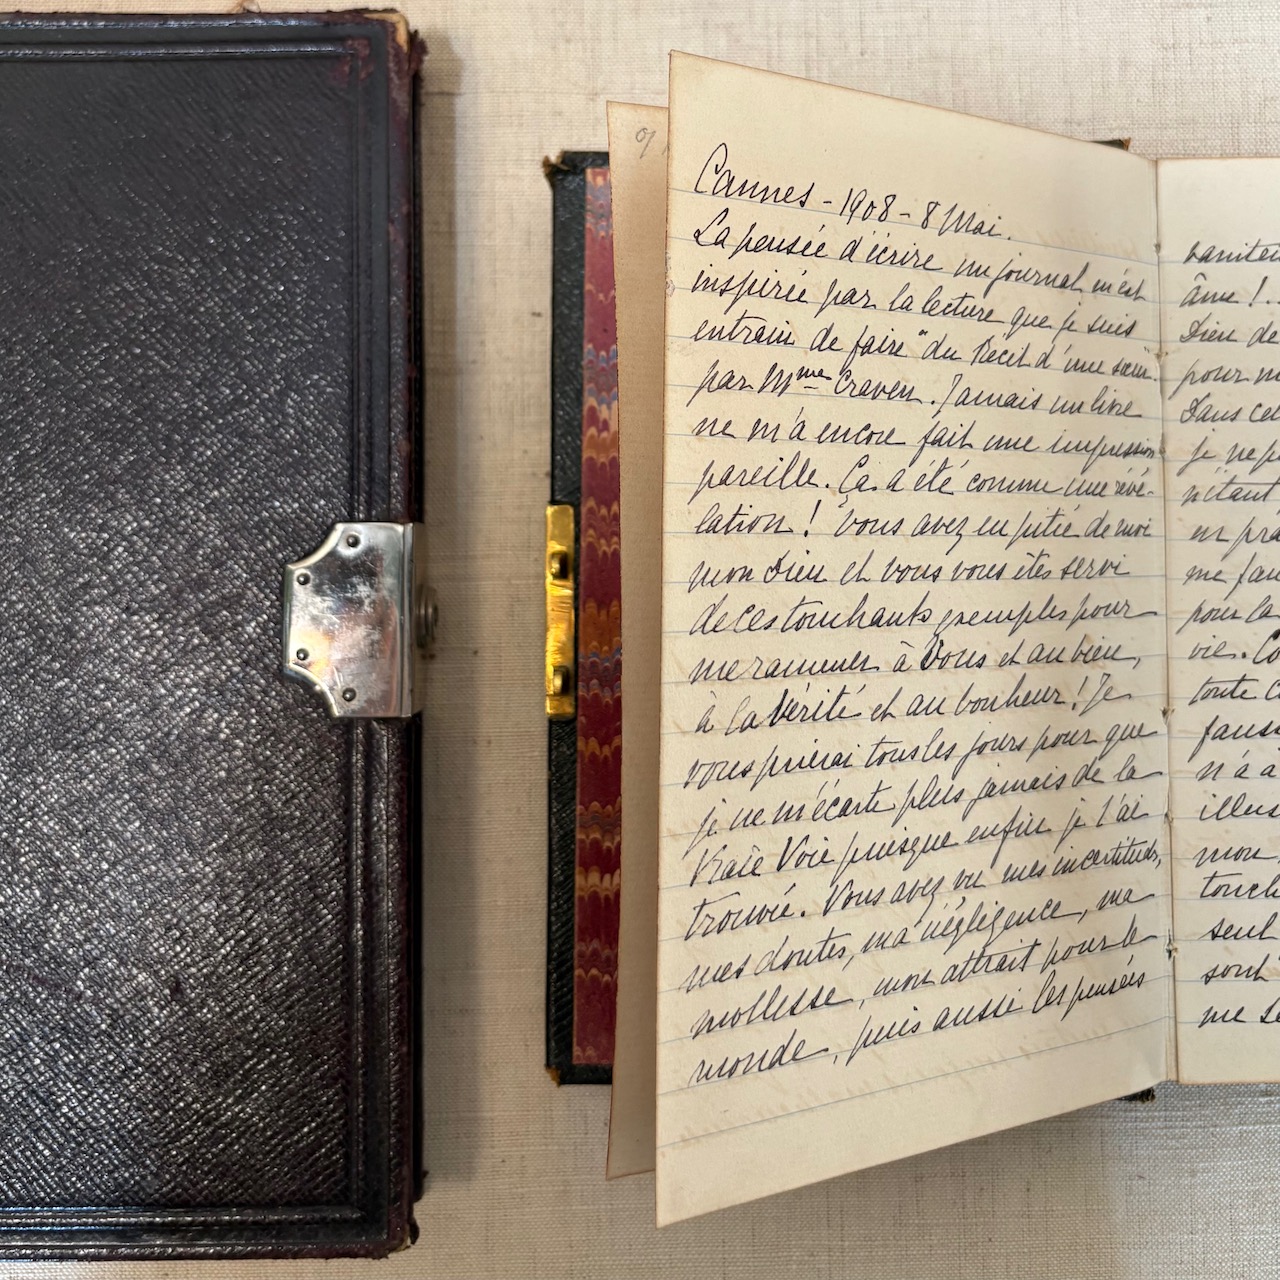 Cannes - 1908 - 8 Mai.
La pensée d'écrire un journal m'est
inspirée par la lecture que je suis
entrain de faire "du Récit d'une sœur"
par Mme Craven. Jamais un livre
ne m'a encore fait une impression
pareille. Ça a été comme une révé-
lation ! Vous avez eu pitié de moi
mon Dieu et vous vous êtes servi
de ces touchants exemples pour
me ramener à Vous et au bien,
à la Vérité et au bonheur ! Je
vous prierai tous les jours pour que
je ne m'écarte plus jamais de la
Vraie Voie puisque enfin je l'ai
trouvée. Vous avez vu mes incertitudes,
mes doutes, ma négligence, ma
mollesse, mon attrait pour le
monde, puis aussi les pensées
âme ! ..
Dieu de
pour
je ne
n'étant
en
me
pour la
vie.
toute
n'a
mon
seul
sont
me